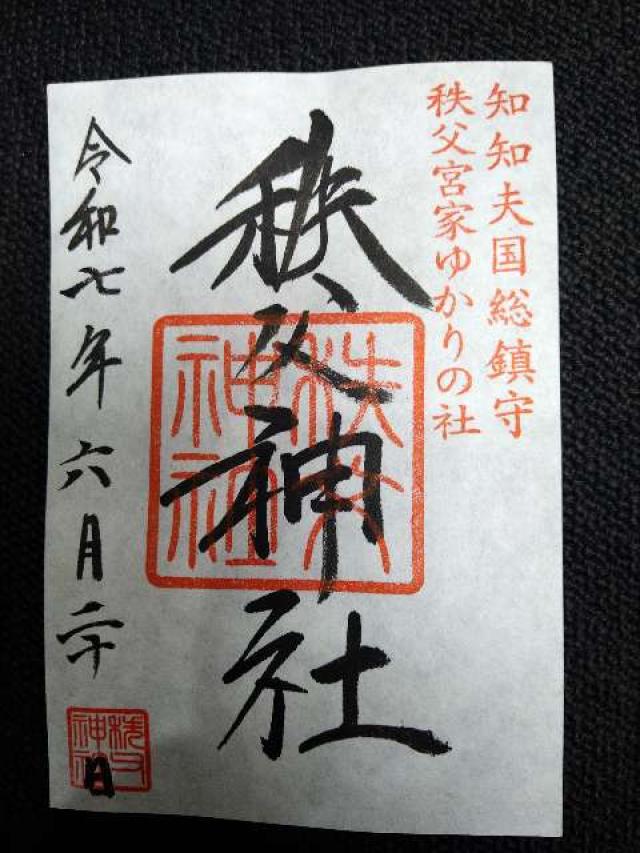 知知夫国総鎮守
秩父宮家ゆかりの社
秩父神社
秩父神社
令和七年六月二十日
秩父神社